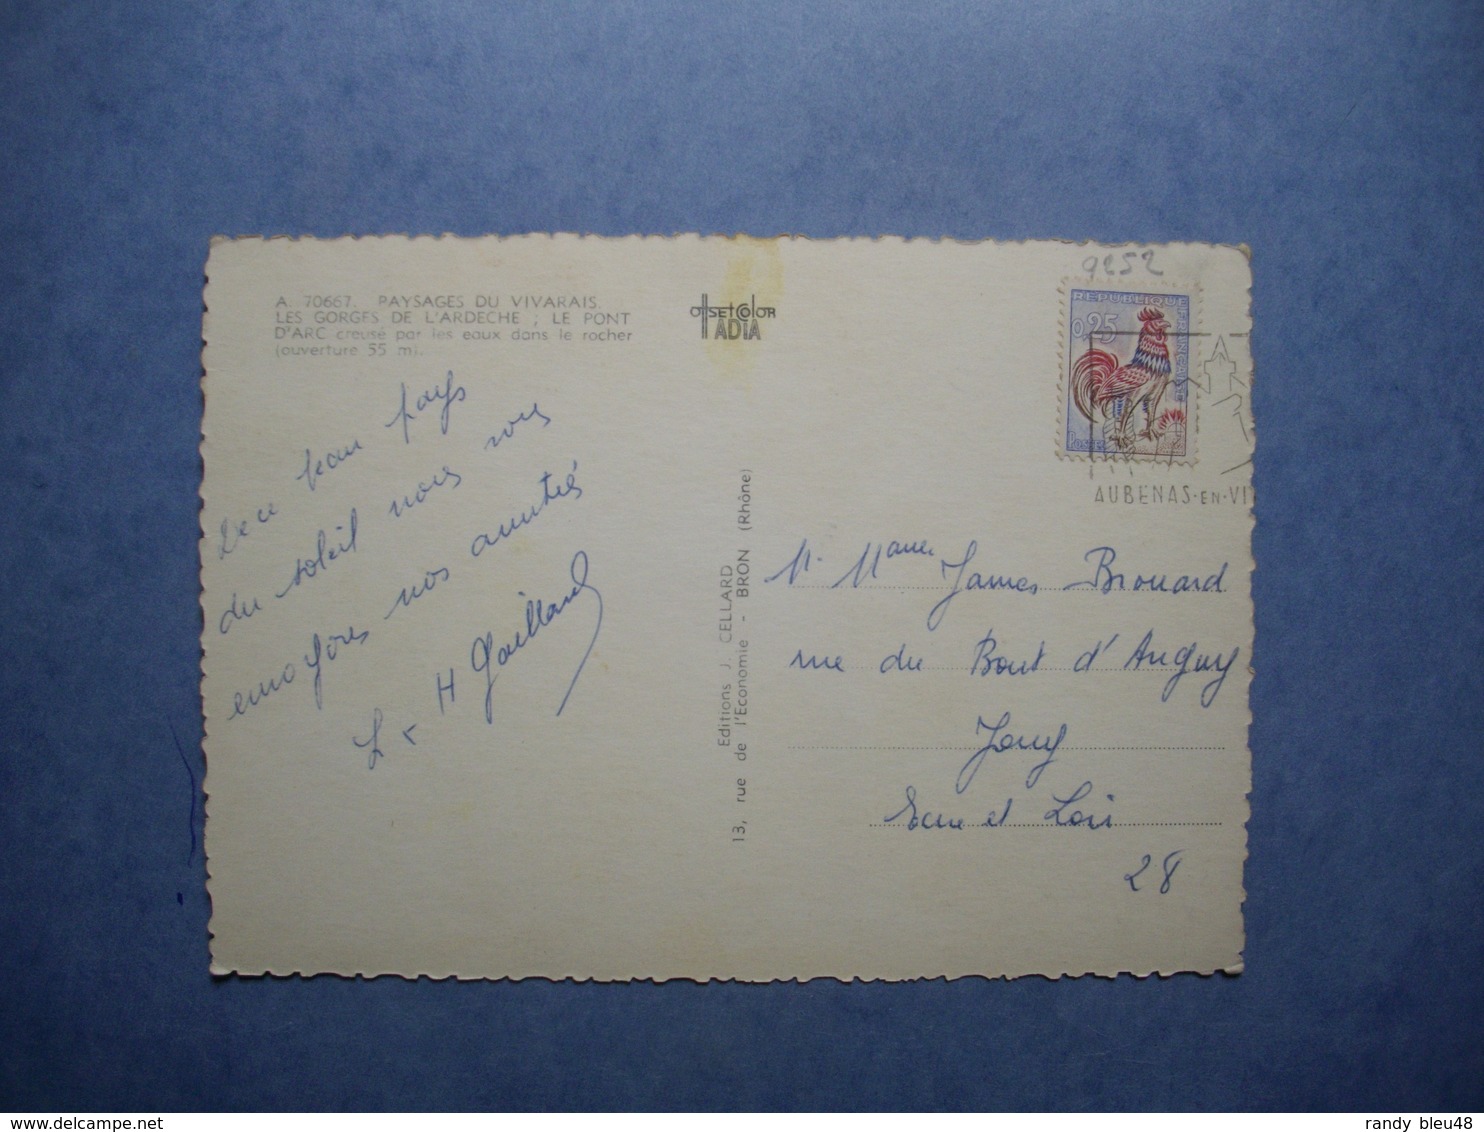 A. 70667. PAYSAGES DU VIVARAIS.
LES GORGES DE L'ARDECHE ; LE PONT
D'ARC creusé par les eaux dans le rocher
(ouverture 55 m).
OFFSETCOLOR
ADIA
9252
REPUBLIQUE FRANÇAISE
0,25
POSTES
AUBENAS-EN-VI
De ce beau pays
du soleil nous vous
envoyons nos amitiés
L et H Gaillard
Editions J. CELLARD
13, rue de l'Economie - BRON (Rhône)
M. Mame James Brouard
rue du Bout d'Anguy
Jouy
Eure et Loir
28
randy bleu48